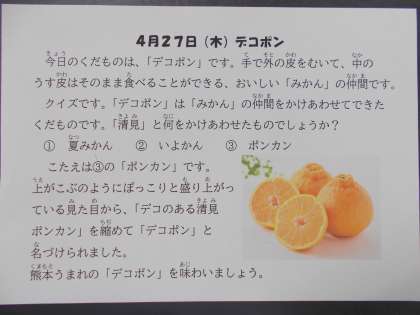 4月27日（木）デコポン
今日のくだものは、「デコポン」です。手で外の皮をむいて、中の
うす皮はそのまま食べることができる、おいしい「みかん」の仲間です。
クイズです。「デコポン」は「みかん」の仲間をかけあわせてできた
くだものです。「清見」と何をかけあわせたものでしょうか？
① 夏みかん　② いよかん　③ ポンカン
こたえは③の「ポンカン」です。
上がこぶのようにぽっこりと盛り上がっ
ている見た目から、「デコのある清見
ポンカン」を縮めて「デコポン」と
名づけられました。
熊本うまれの「デコポン」を味わいましょう。